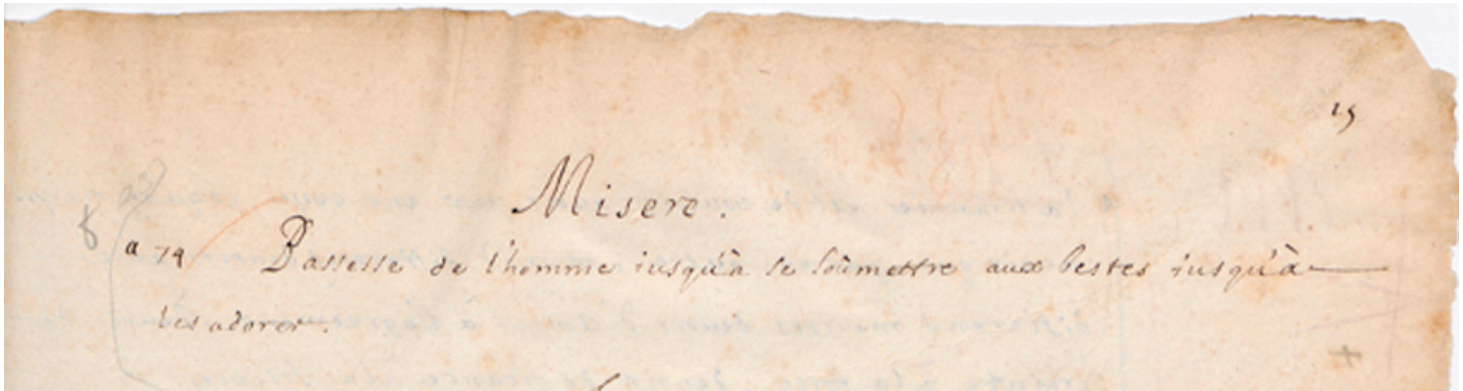 15
Misere.
a 74 Bassesse de l'homme iusqu'à se soûmettre aux bestes iusqu'à
les adorer.